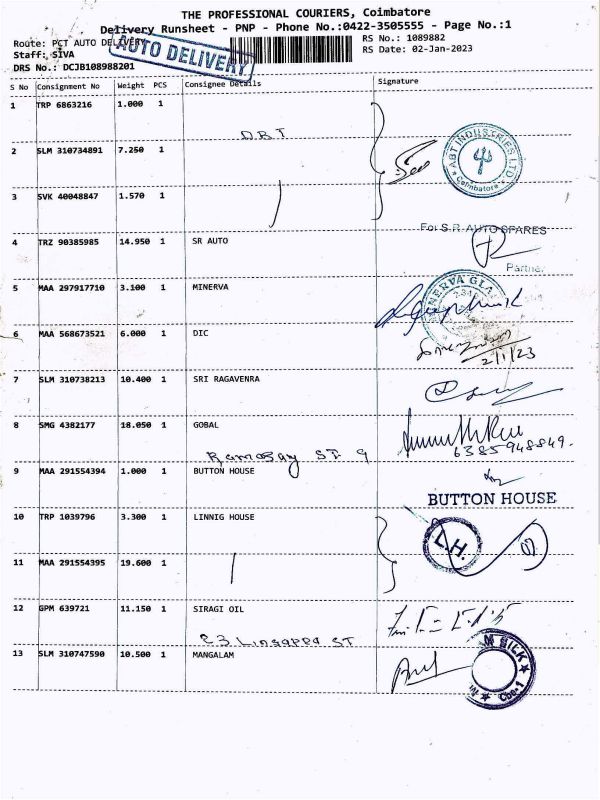 THE PROFESSIONAL COURIERS, Coimbatore
Delivery Runsheet - PNP - Phone No.:0422-3505555 - Page No.:1
Route: PCT AUTO DELIVERY
AUTO DELIVERY
RS No.: 1089882
Staff: SIVA
RS Date: 02-Jan-2023
DRS No.: DCJB108988201
S No Consignment No Weight PCS Consignee Details Signature
1 TRP 6863216 1.000 1
2 SLM 310734891 7.250 1
ABT INDUSTRIES LTD
Coimbatore
3 SVK 40048847 1.570 1
For S.R. AUTO SPARES
4 TRZ 90385985 14.950 1 SR AUTO
Partner
5 MAA 297917710 3.100 1 MINERVA
MINERVA GLA
6 MAA 568673521 6.000 1 DIC
2/1/23
7 SLM 310738213 10.400 1 SRI RAGAVENRA
8 SMG 4382177 18.050 1 GOBAL
6385948849.
9 MAA 291554394 1.000 1 BUTTON HOUSE
BUTTON HOUSE
10 TRP 1039796 3.300 1 LINNIG HOUSE
L.H.
11 MAA 291554395 19.600 1
12 GPM 639721 11.150 1 SIRAGI OIL
23 Lingappa ST
13 SLM 310747590 10.500 1 MANGALAM
M SILK
Cbe-1